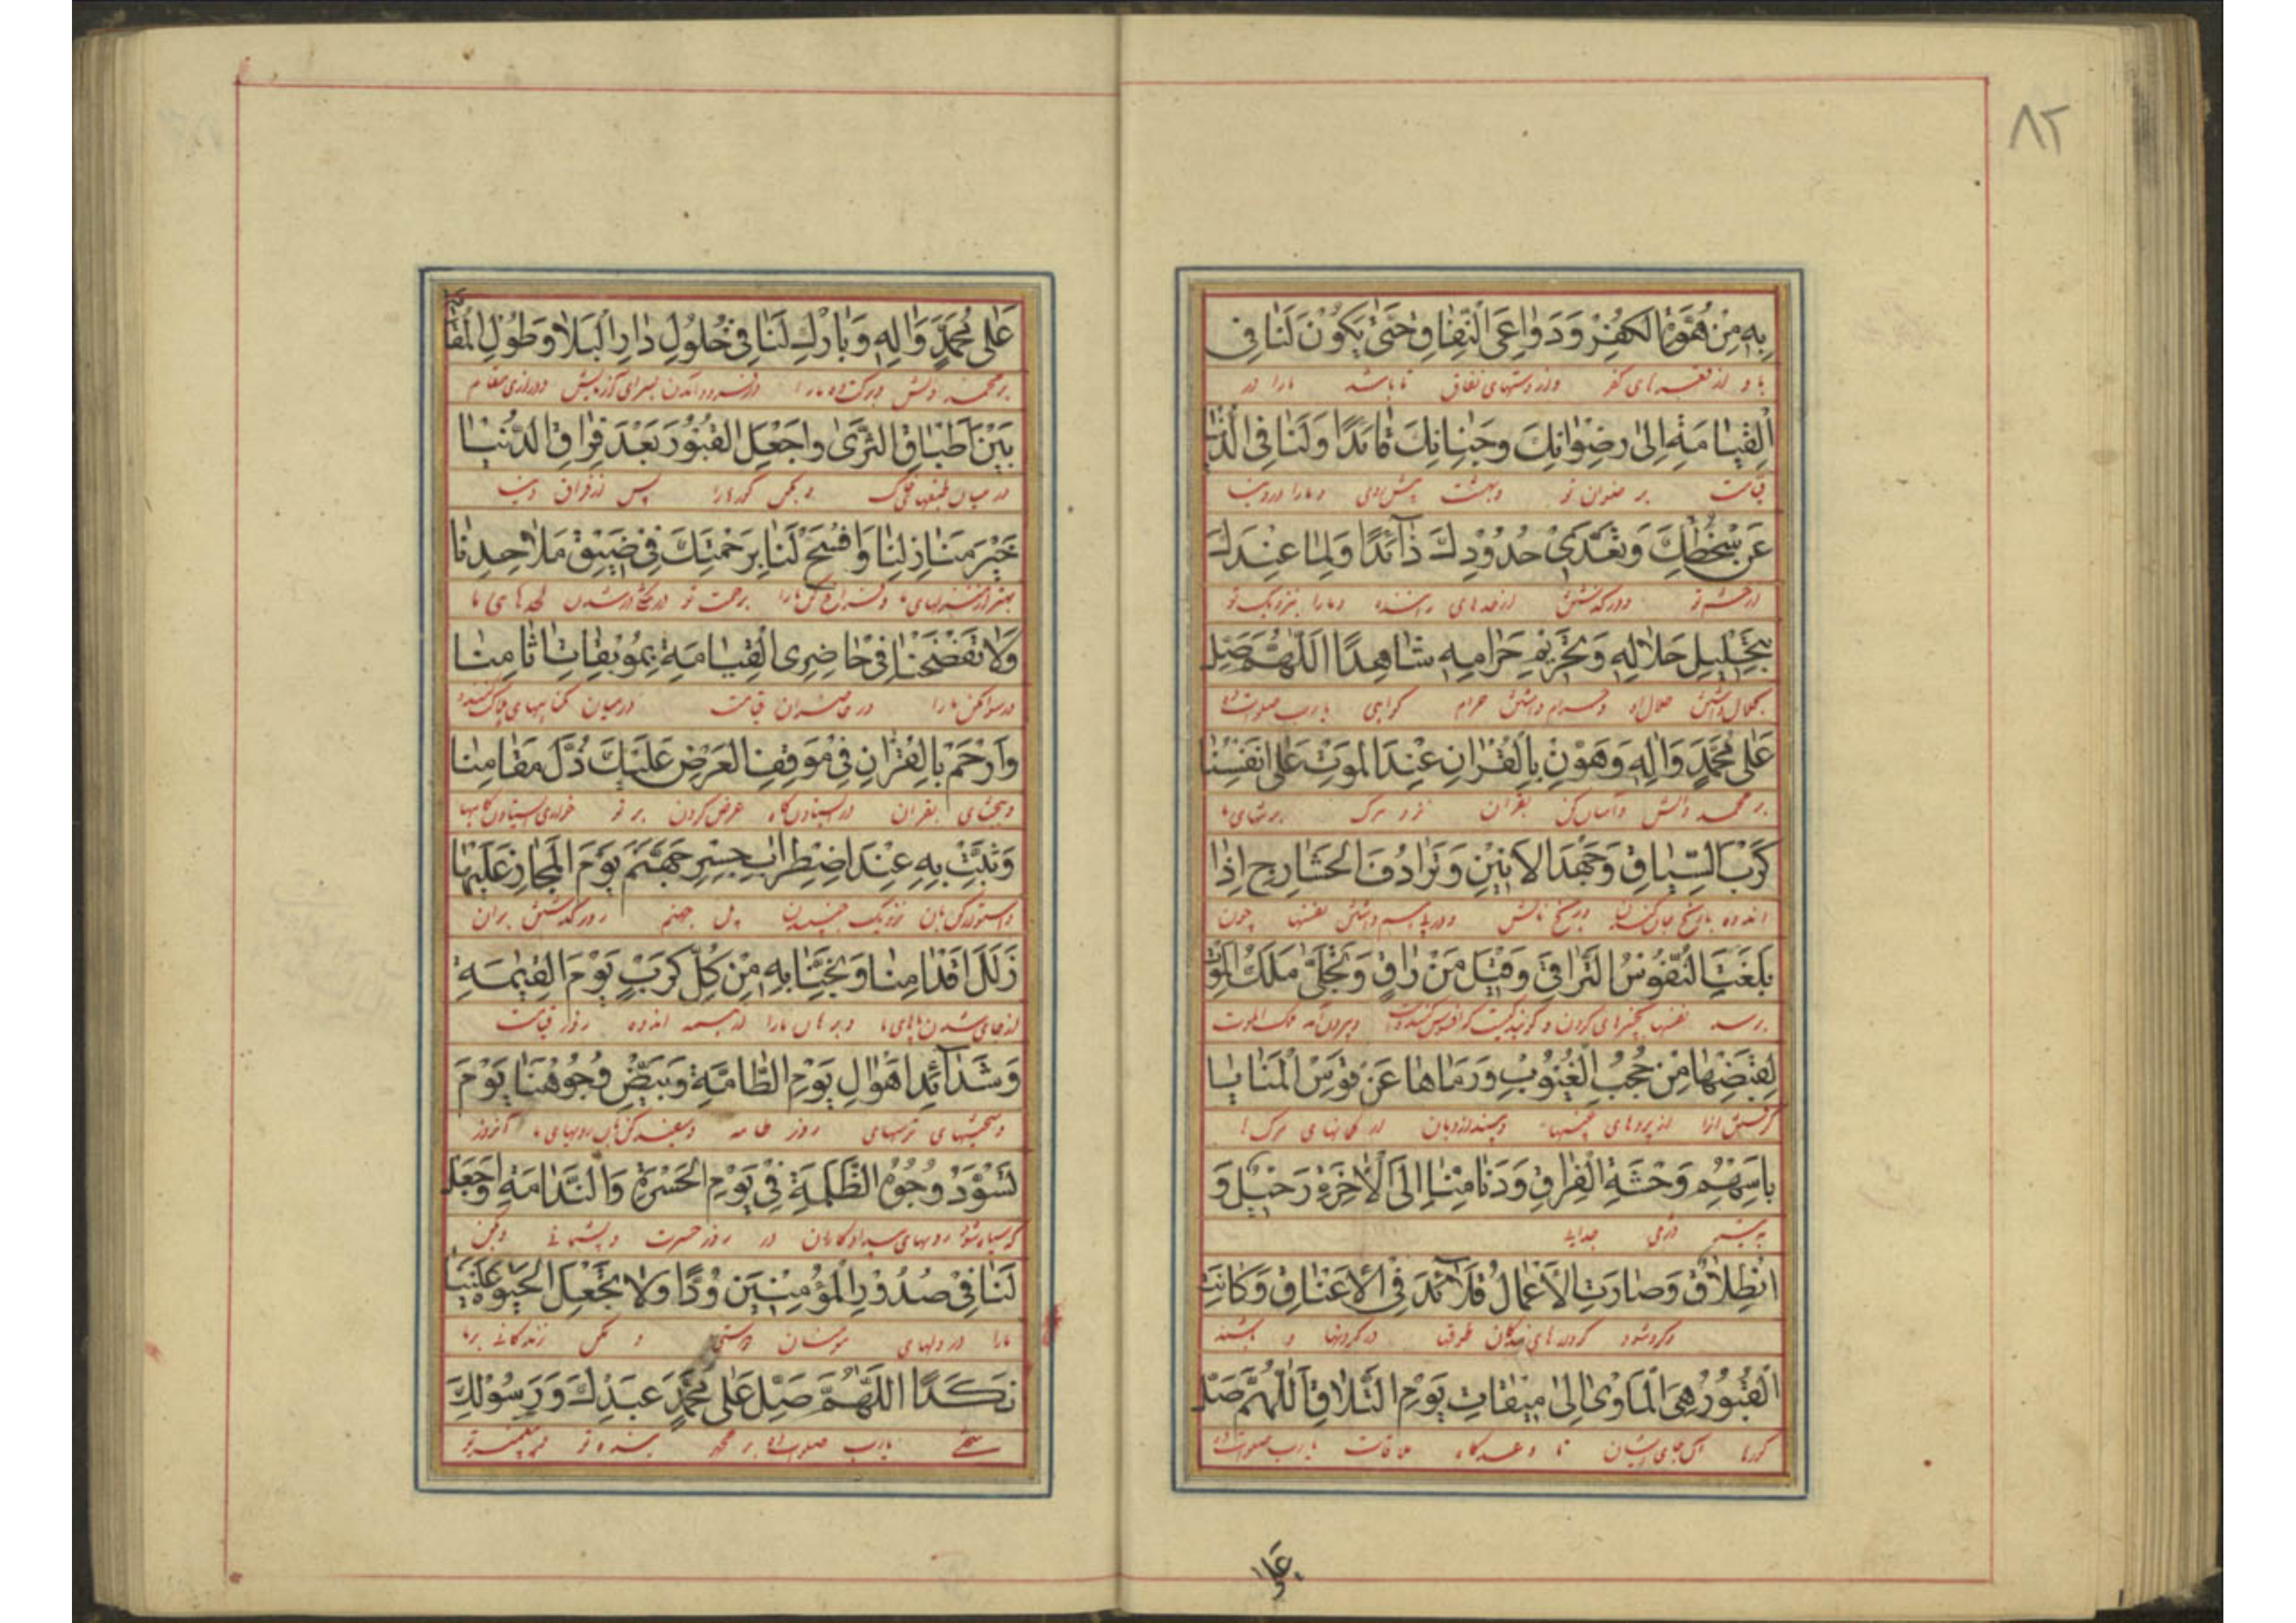 ۸۲
بِهِ مِنْ هُوَّةِ الْكُفْرِ وَدَوَاعِى النِّفَاقِ حَتّىٰ يَكُوْنَ لَنَا فِى
با و از های کفر و از دوستیهای نفاق تا باشد ما را در
الْقِيَامَةِ اِلىٰ رِضْوَانِكَ وَجِنَانِكَ قَائِدًا وَلَنَا فِى الدُّنْيَا
قیامت بر رضوان تو و بهشت و ما را در دنیا
عَنْ سَخَطِكَ وَتَعَدّىٖ حُدُوْدِكَ ذَآئِدًا وَلِمَا عِنْدَكَ
از خشم تو و درگذشتن از حدهای راننده و ما را بنزدیک تو
بِتَحْلِيْلِ حَلَالِهِ وَتَحْرِيْمِ حَرَامِهِ شَاهِدًا اَللّٰهُمَّ صَلِّ
بحلال داشتن حلال او و حرام داشتن حرام گواهی یا رب صلوات ده
عَلىٰ مُحَمَّدٍ وَاٰلِهِ وَهَوِّنْ بِالْقُرْاٰنِ عِنْدَ الْمَوْتِ عَلىٰ اَنْفُسِنَا
بر محمد و آلش و آسان کن بقران نزد مرگ بر تنهای ما
كَرْبَ السِّيَاقِ وَجَهْدَ الْاَنِيْنِ وَتَرَادُفَ الْحَشَارِجِ اِذَا
اندوه جان کندن و رنج نالش نفسها چون
بَلَغَتِ النُّفُوْسُ التَّرَاقِىَ وَقِيْلَ مَنْ رَاقٍ وَتَجَلّىٰ مَلَكُ الْمَوْتِ
برسد نفسها بچنبرهای گردن و گویند کیست ملک الموت
لِقَبْضِهَا مِنْ حُجُبِ الْغُيُوْبِ وَرَمَاهَا عَنْ قَوْسِ الْمَنَايَا
از پردهای غیبها از کمانهای مرگها
بِاَسْهُمِ وَحْشَةِ الْفِرَاقِ وَدَنَا مِنَّا اِلَى الْاٰخِرَةِ رَحِيْلٌ وَ
جدایی
انْطِلَاقٌ وَصَارَتِ الْاَعْمَالُ قَلَآئِدَ فِى الْاَعْنَاقِ وَكَانَتِ
طوقها در گردنها و باشند
الْقُبُوْرُ هِىَ الْمَاْوىٰ اِلىٰ مِيْقَاتِ يَوْمِ التَّلَاقِ اَللّٰهُمَّ صَلِّ
گورها تا وعده گاه ملاقات یا رب صلوات ده
عَلىٰ
عَلىٰ مُحَمَّدٍ وَاٰلِهِ وَبَارِكْ لَنَا فِىْ حُلُوْلِ دَارِ الْبَلَا وَطُوْلِ الْمُقَامَةِ
بر محمد و آلش و برکت ده ما را در فرود آمدن بسرای آزمایش و درازی مقام
بَيْنَ اَطْبَاقِ الثَّرىٰ وَاجْعَلِ الْقُبُوْرَ بَعْدَ فِرَاقِ الدُّنْيَا
در میان طبقهای خاک و بکن گورها را پس از فراق دنیا
خَيْرَ مَنَازِلِنَا وَافْسَحْ لَنَا بِرَحْمَتِكَ فِىْ ضِيْقِ مَلَاحِدِنَا
بهتر از منزلهای ما و فراخ کن ما را برحمت تو در لحدهای ما
وَلَا تَفْضَحْنَا فِىْ حَاضِرِى الْقِيَامَةِ بِمُوْبِقَاتِ اٰثَامِنَا
و رسوا مکن ما را در حاضران قیامت در میان گناههای هلاک کننده
وَارْحَمْ بِالْقُرْاٰنِ فِىْ مَوْقِفِ الْعَرْضِ عَلَيْكَ ذُلَّ مَقَامِنَا
و ببخشای بقران در ایستادن گاه عرض کردن بر تو خواری ایستادن گاهها
وَثَبِّتْ بِهِ عِنْدَ اضْطِرَابِ جِسْرِ جَهَنَّمَ يَوْمَ الْمَجَازِ عَلَيْهَا
و استوار کن بان نزدیک جنبیدن پل جهنم روز گذشتن بران
زَلَلَ اَقْدَامِنَا وَنَجِّنَا بِهِ مِنْ كُلِّ كَرْبٍ يَوْمَ الْقِيٰمَةِ
از جای شدن پایهای ما و برهان ما را از همه اندوه روز قیامت
وَشَدَآئِدِ اَهْوَالِ يَوْمِ الطَّامَّةِ وَبَيِّضْ وُجُوْهَنَا يَوْمَ
و سختیهای ترسهای روز طامه و سفید کن رویهای ما آنروز
تَسْوَدُّ وُجُوْهُ الظَّلَمَةِ فِىْ يَوْمِ الْحَسْرَةِ وَالنَّدَامَةِ وَاجْعَلْ
که سیاه شود رویهای بیدادکاران در روز حسرت و پشیمانی و بکن
لَنَا فِىْ صُدُوْرِ الْمُؤْمِنِيْنَ وُدًّا وَلَا تَجْعَلِ الْحَيٰوةَ عَلَيْنَا
ما را در دلهای مومنان دوستی و مکن زندگانی بر ما
نَكَدًا اَللّٰهُمَّ صَلِّ عَلىٰ مُحَمَّدٍ عَبْدِكَ وَرَسُوْلِكَ
سختی یا رب صلوات ده بر محمد بنده تو و پیغمبر تو